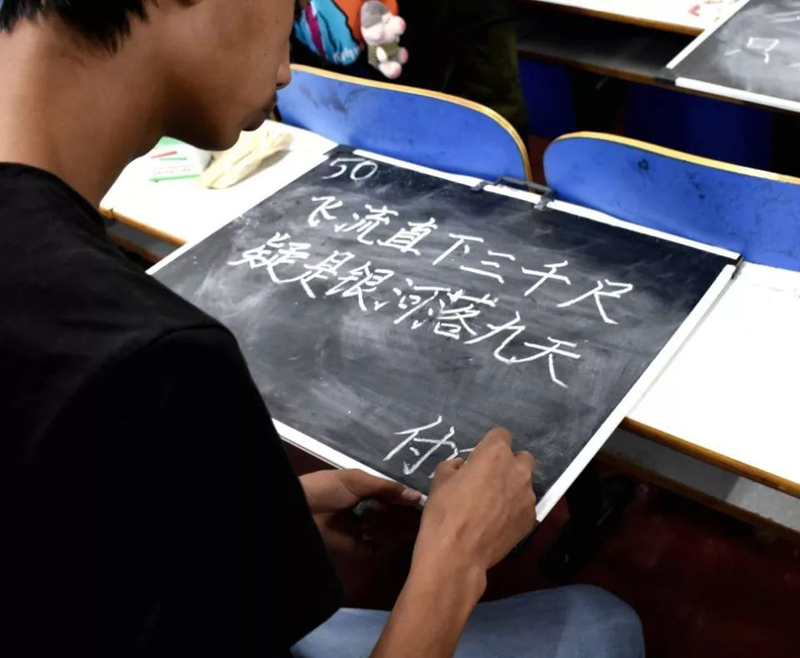 50
飞流直下三千尺
疑是银河落九天
付